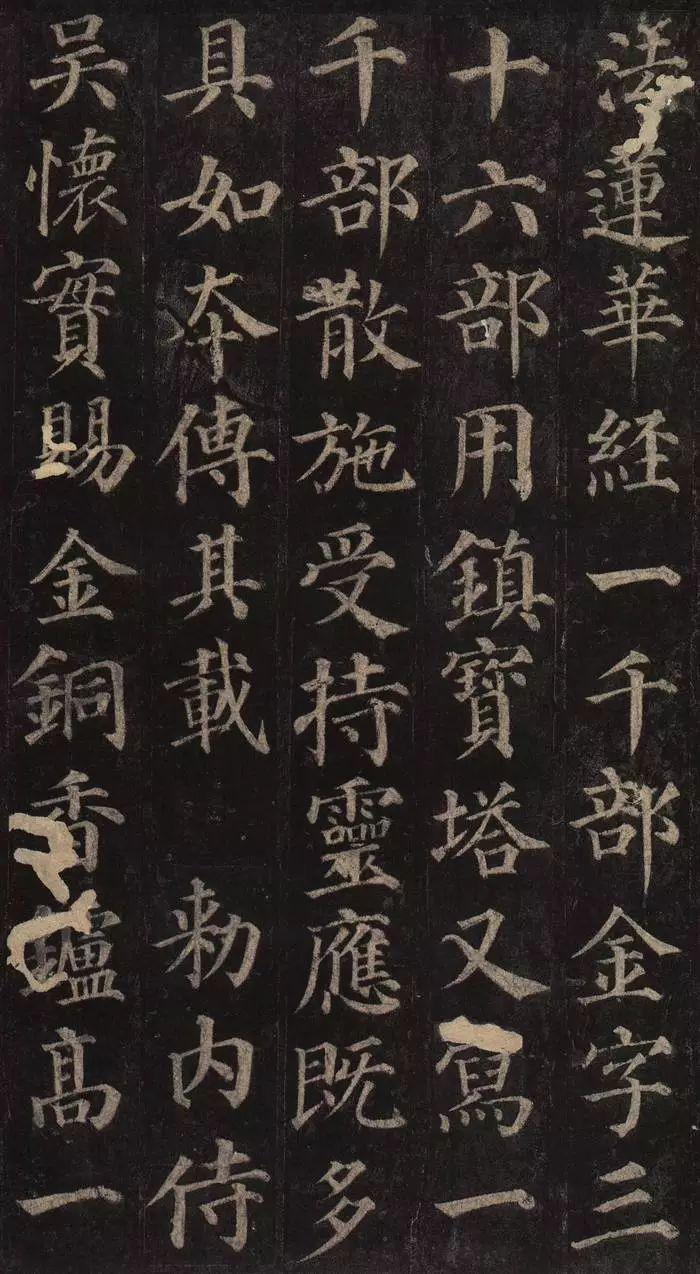 法蓮華経一千部金字三
十六部用鎮寶塔又寫一
千部散施受持靈應既多
具如夲傳其載　勑内侍
吳懷實賜金銅香鑪髙一